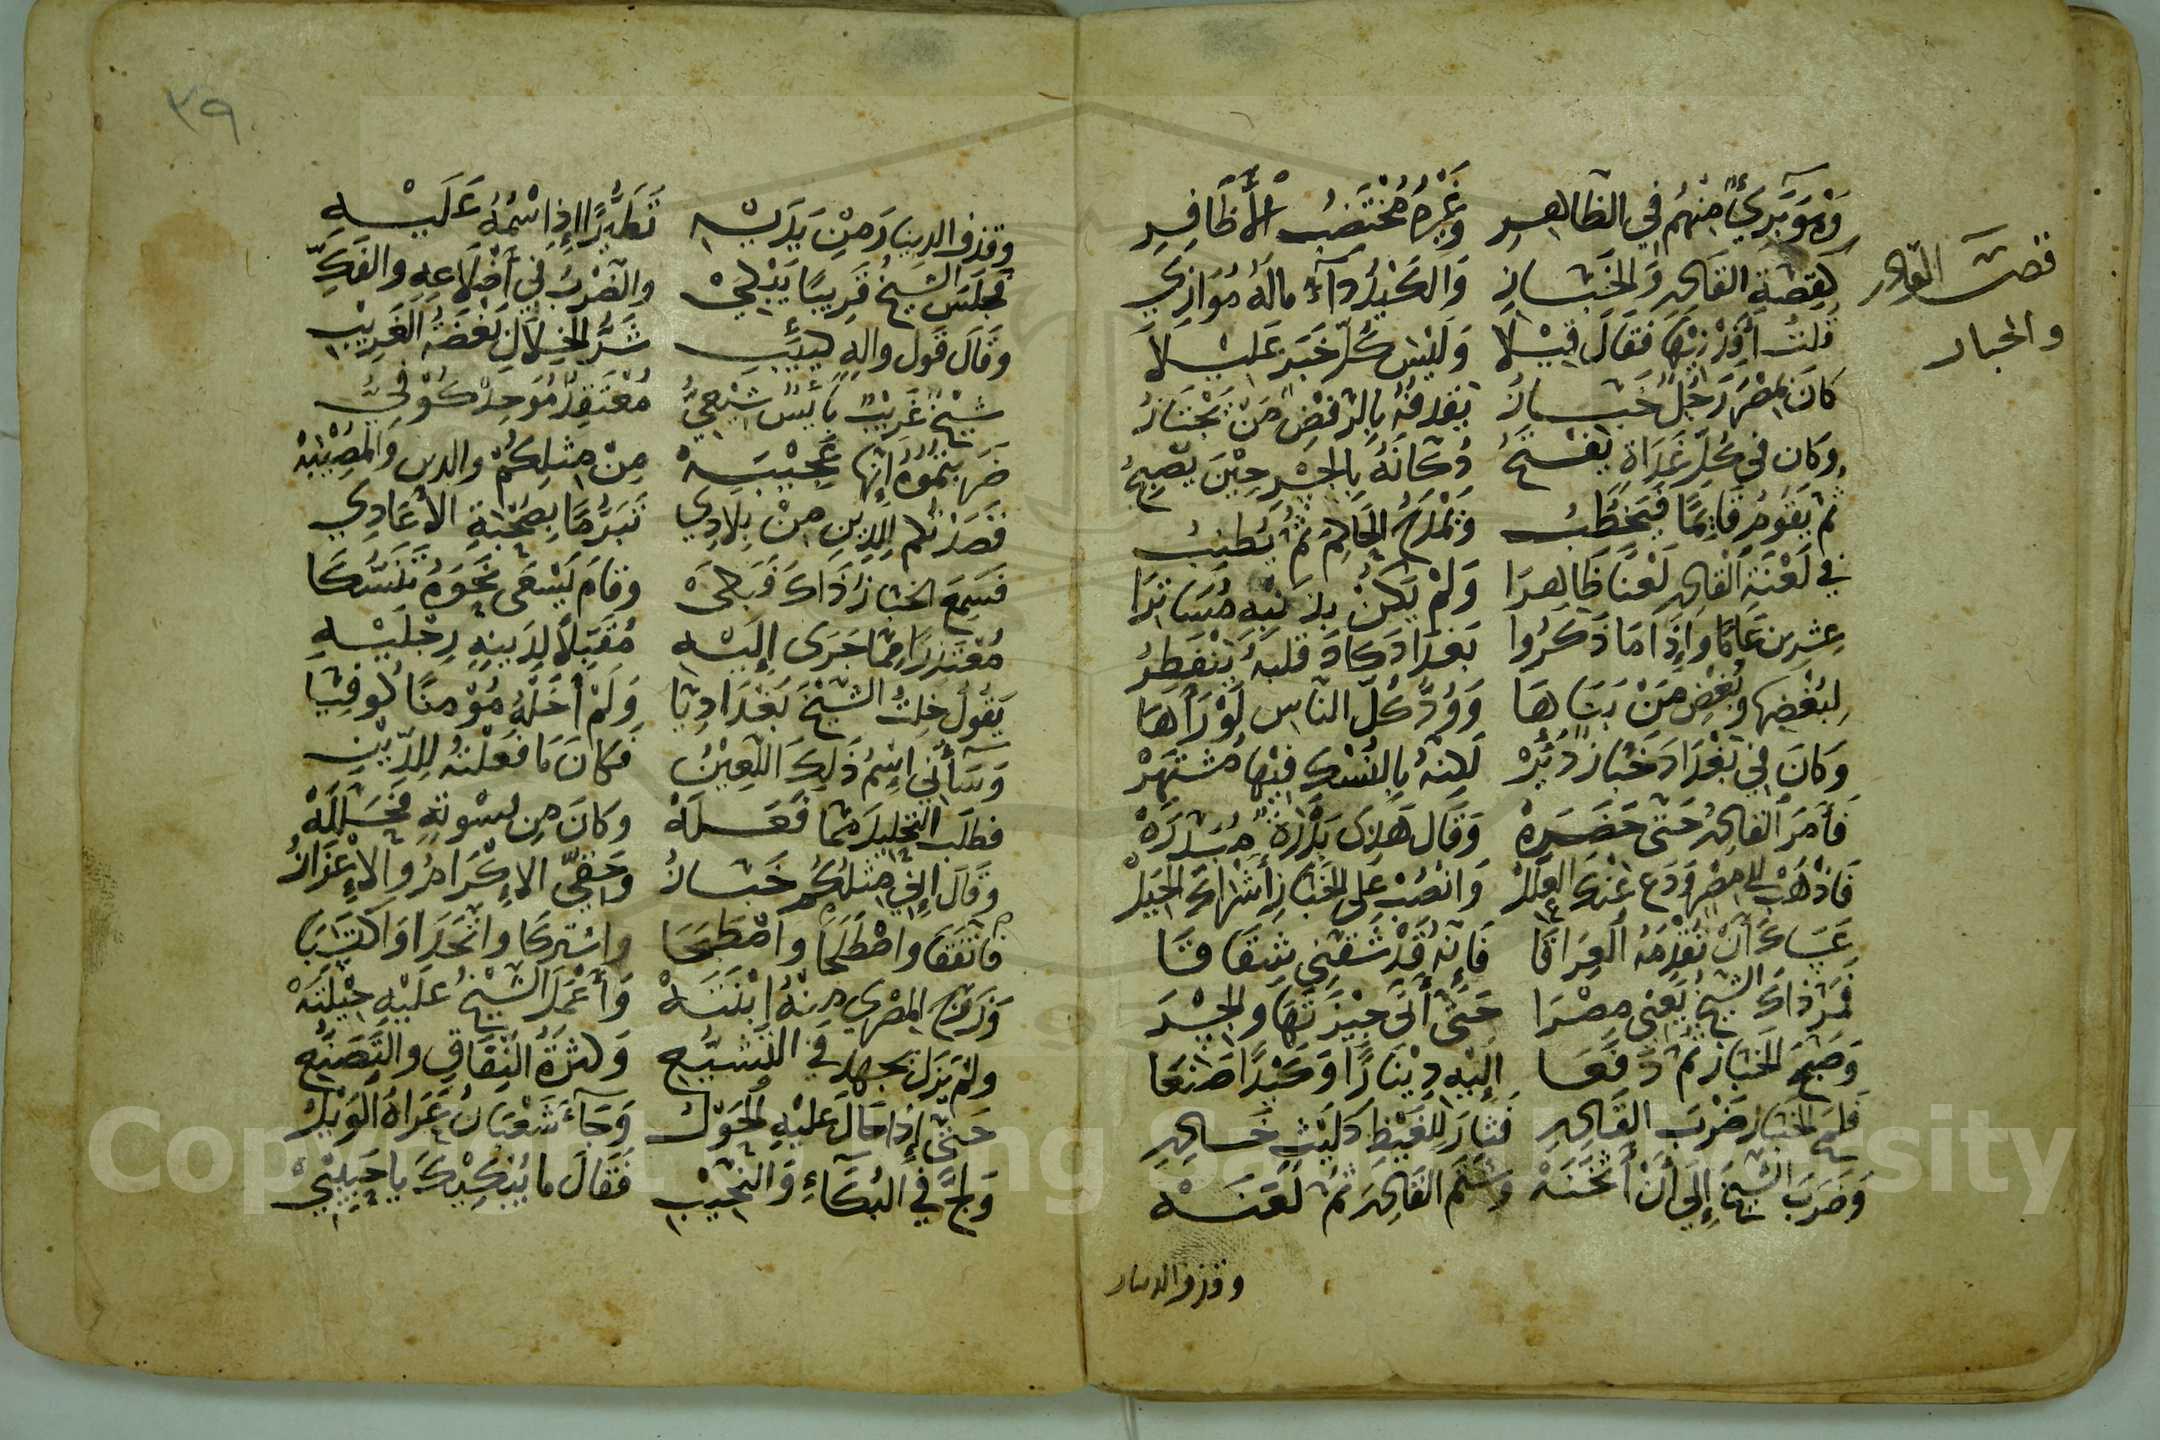 وَهْوَ بَرِئٌ مِنْهُمُ في الظاهِرِ وَغَيْرُهُ مُخْتَضِبُ الأَظَافِرِ
كَقِصَّةِ القَادِرِ وَالخَبَّازِ وَالكَيْدُ دَآءٌ مالَهُ مُوَازِي
قُلتُ أَفِدْنِيْهَا فَقَالَ قِيْلَا وَلَيْسَ كُلّ خَبَرٍ عَلِيْلَا
كَانَ بمِصْرَ رَجُلٌ خَبَّازُ يَعْرفُهُ بِالرَّفْضِ مَنْ يَجْتَازُ
وَكَانَ فِي كُلِّ غَدَاةٍ يَفْتَحُ دُكَّانَهُ بِالجِسْرِ حِيْنَ يُصْبِحُ
ثُمّ يَقُومُ قَائِمًا فَيَخْطُبُ وَيَمْدَحُ الحَاكِمَ ثُمّ يُطْنِبُ
فِي لَعْنَةِ القَادِرِ لَعْنًا ظَاهِرَا وَلَمْ يَكُنْ بِذَنْبِهِ مُسَاتِرَا
عِشرِينَ عَامًا وَإِذَا مَا ذَكَرُوا بَغْدَادَ كَادَ قَلبُهُ يَنْفَطِرُ
لِبُغْضِهَا وَبُغْضِ مَنْ بَنَاهَا وَوُدِّ كُلّ النَّاسِ لَوْ رَآهَا
وَكَانَ فِي بَغْدَادَ خَبَّازٌ دُبُرْ لَكِنَّهُ بِالنُسْكِ فِيْهَا مُشْتَهَرْ
فَأَمَرَ القَادِرُ حَتَّى حَضَرَهْ وَقَالَ هَذِي بَدْرَةٌ مُبَدَّرَهْ
فَاذْهَبْ إلى مِصْرَ وَدَع عَنْكَ العِلَلْ وَانْصُبْ عَلى الخَبَّازِ أَشْرَاكَ الحِيَلْ
عَسَاكَ أَنْ تُقْدِمَهُ العِرَاقَا فَإِنَّهُ قَدْ شَقَّنِي شِقَاقَا
فَمَرَّ ذَاكَ الشيخُ يَبْغِي مِصْرَا حَتَّى أَتَى جِيْزَتَهَا وَالجِسْرَ
وَصَبَّحَ الخَبَّازَ ثُمّ دَفَعَا إِلَيْهِ دِيْنَارًا وَكَيْدًا صَنَعَا
فَلَمَحَ الخَبَّازُ ضَرْبَ القَادِرِ فَثَارَ لِلغَيْظِ كَلَيْثٍ خَادِرِ
وَضَرَبَ الشَّيْخَ إِلَى أَنْ أَثْخَنَهْ وَشَتَمَ القَادِرَ ثُمّ لَعَنَهْ
وقذف الدينار
قصة القادر
والخباز
٣٩
وقذفَ الدينارَ مِنْ يَدَيْهِ تَطَيُّرًا إِذِ اسْمُهُ عَلَيْهِ
فجَلَسَ الشيخُ قَرِيبًا يَبْكِيْ والضَّرْبُ فِي أَضْلَاعِهِ والفَكِّ
وقَالَ قَولَ والِهٍ كَئِيْبِ شَرُّ الخِلَالِ بُغْضَةُ الغَرِيْبِ
شيْخٌ غَرِيْبٌ بَائِسٌ شِيْعِيُّ مُعْتَقِدٌ مُوَحِدٌ كُوْفِيُّ
ضَرَبْتُمُوهُ إِنَّهَا عَجِيْبَهْ مِنْ مِثلِكُمْ والدين وَالمُصِيْبَهْ
قَصَدْتُكم للدِينِ مِنْ بِلَادِي تَبَرُّمًا بِصُحْبَةِ الأَعَادِي
فَسَمِعَ الخَبَّازُ ذَاكَ فَبَكَى وقَامَ يَسْعَى نَحْوَهُ تَنَسُّكَا
مُعْتَذِرًا مِمَّا جَرَى إِلَيْهِ مُقَبِّلًا لِدِينِهِ رِجْلَيْهِ
يَقُولُ خِلتُ الشَّيْخَ بَغْدَادِيَّا وَلَمْ أَخَلْهُ مُؤْمِنًا كُوفِيَّا
وَسَآئَنِي اسْمُ ذَلِكَ اللَّعِيْنِ فَكَانَ مَا فَعَلْتُهُ لِلدِّيْنِ
فَطَلَبَ التَحْلِيلَ مِمَّا فَعَلَهْ وَكَانَ مِن سُوْئَتِهِ فَحَلَّلَهْ
وَقَالَ إِنِّي مِثْلُكُم خَبَّازُ وَحَقِّيَ الإِكْرَامُ وَالإِعْزَازُ
فَاتَّفَقَا واصْطَلَحَا واصْطَحَبَا واشْتَرَكَا واتَّحَدَا وَاكتَسَبَا
وَزَوَّجَ المِصْرِي مِنْهُ ابْنَتَهْ وَأَعْمَلَ الشَّيْخُ عَلَيْهِ حِيْلَتَهْ
ولم يَزَلْ يَجهدُ فِي التَّشَيُّعِ وَكَثْرَةِ النِّفَاقِ والتَّصَنُّعِ
حَتَّى إِذَا حَالَ عَلَيْهِ الحَوْلُ وَجَآءَ شَعْبَانُ عَرَاهُ الوَيْلُ
وَلَجَّ فِي البُكَآءِ وَالنَّحِيْبِ فَقَالَ مَا يُبْكِيْكَ يا حَبِيْبِيْ